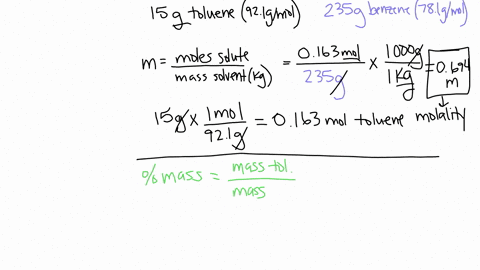 15g toluene (92.1g/mol) 235g benzene (78.1g/mol)
m = moles solute / mass solvent (kg) = 0.163 mol / 235g × 1000g / 1 Kg = 0.694 m
15g × 1mol / 92.1g = 0.163 mol toluene molality
% mass = mass tol. / mass